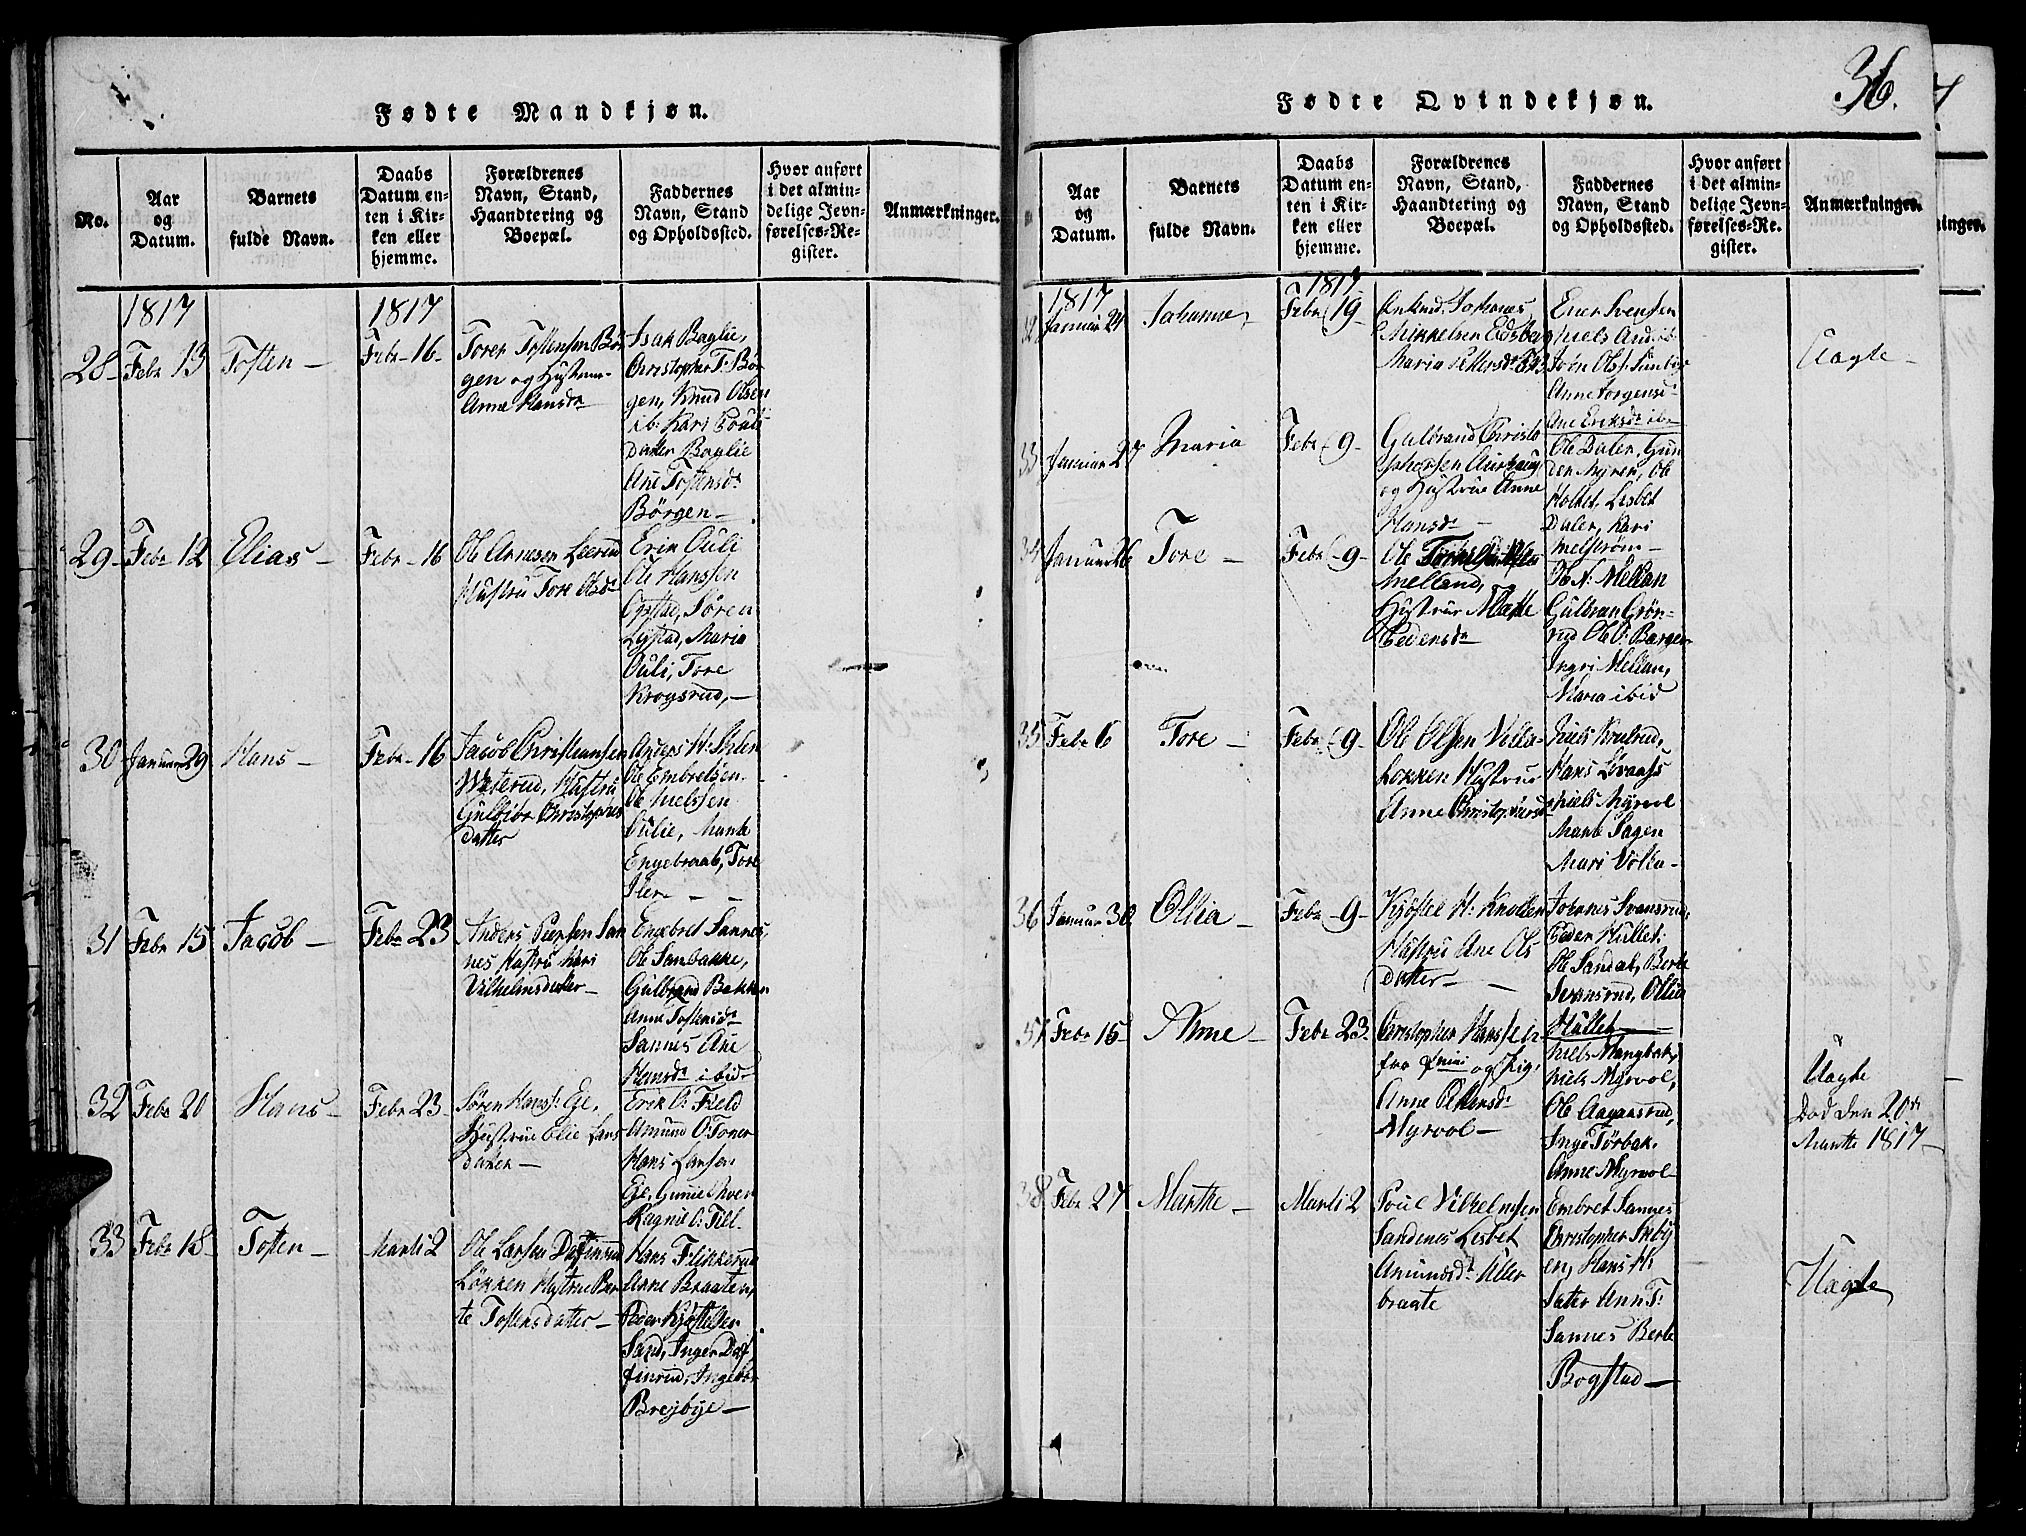 Fødte Mandkjøn.
No.
Aar
og
Datum.
Barnets
fulde Navn.
Daabs
Datum en-
ten i Kir-
ken eller
hjemme.
Forældrenes
Navn, Stand,
Haandtering og
Boepæl.
Faddernes
Navn, Stand
og Opholdsted.
Hvor anført
i det almin-
delige Jevn-
førelses-Re-
gister.
Anmærkninger.
1817
1817
28 Febr 13 Tosten - Febr - 16
Torer Tostensen Bør
gen og Hustrue
Anne Hansdr
Isak Baglie,
Christopher T: Bør
gen, Knud Olsen
ib: Kari Pouls
datter Baglie
Ane Tostensdr
Børgen -
29 Febr 12 Elias - Febr - 16
Ole Arnesen Leerud
Hustru Tore Olsdr
Erik Ouli
Ole Hanssen
Opstad, Søren
Lystad, Maria
Ouli, Tore
Krogsrud, -
30 Januar 29 Hans - Febr - 16
Jacob Christiansen
Wæterud, Hustru
Gulbjør Christophers
datter
Anders H:
Ole Embretsen
Ole Nielssen
Oulie, Marte
Engebraat, Tore
Iler - -
31 Febr 15 Jacob - Febr 23
Anders Peersen San
nes Hustru Kari
Vilhelmsdatter -
Enxebret Sannes
Ole Sanbakke,
Gulbrand Bakken
Anne Tostensdr
Sannes Ane
Hansdr ibid
32 Febr 20 Hans - Febr 23 -
Søren Hanss: Eje,
Hustrue Elie Lars
datter -
Erik O: Field
Amund O: Toner
Hans Larsen
Eje, Guniel
Ragnil O: Till
33 Febr 18 Tosten - Marti 2
Ole Larsen Dæfinrud
Løkken Hustrue Ber
te Tostensdatter -
Hans Flikkerud
Anne Braaten,
Peder Kjøstelsen
Sand, Inger Dæf
finrud, Ingebor
Brejbye -
36.
Fødte Qvindekjøn.
Aar
og
Datum.
Barnets
fulde Navn.
Daabs
Datum en-
ten i Kir-
ken eller
hjemme.
Forældrenes
Navn, Stand,
Haandtering og
Boepæl.
Faddernes
Navn, Stand
og Opholdssted.
Hvor anført
i det almin-
delige Jevn-
førelses-Re-
gister.
Anmærkninger.
ninger.
1817
1817
32 Januar 24 Johanne - Febr 19 -
Enkmd. Johannes
Mikkelsen Edsberg
Maria Pettersdr
Ener Svensen
Niels And: ib
Jørn Olss:
Anne Jørgensd
Ane Eriksdr ibr
Uagte -
33 Januar 27 Maria Febr 9 -
Gulbrand Christo
phersen Aurhaug
og Hustrue Anne
Hansdr -
Ole Daler, Gun
der Myrer, Ole
Holtet, Lisbet
Daler, Kari
Melstrøm -
34 Januar 26 Tore - Febr - 9 -
Ole
Melland,
Hustrue Marte
Pedersdr
Ole N: Mellan
Gulbran Grøn-
rud Ole O: Børgen
Ingri Mellan,
Maria ibid
35 Febr 6 Tore - Febr - 9 -
Ole Olsen Volla-
Løkken Hustrue
Anne Christophersd
Niels Krulrud,
Hans Løvaass
Niels Myrvol
Marte Sagen
Mari Volla -
36 Januar 30 Ollia - Febr - 9 -
Kjøstel H: Knollen
Hustru Ane Ols
datter - -
Johannes Svansrud,
Peder Hullet:
Ole Sandak, Berte
Svansrud, Ollia
Hullet -
37 Febr 15 Anne - Febr 23
Christopher Hanssen
fra og Pig:
Anne Pettersdr
Myrvol -
Niels Mangbak,
Niels Myrvol,
Ole Aagaasrud,
Inge Tørbak,
Anne Myrvol -
Uagte
Død den 20de
Martte 1817 -
38 Febr 24 Marthe - Marti 2
Poul Vilhelmsen
Sandenes Lisbet
Amundsdr Uller
bragte
Embret Sannes
Christopher Skby
en, Hans H:
Sater Ann T:
Sannes Berte
Bogstad -
Uagte